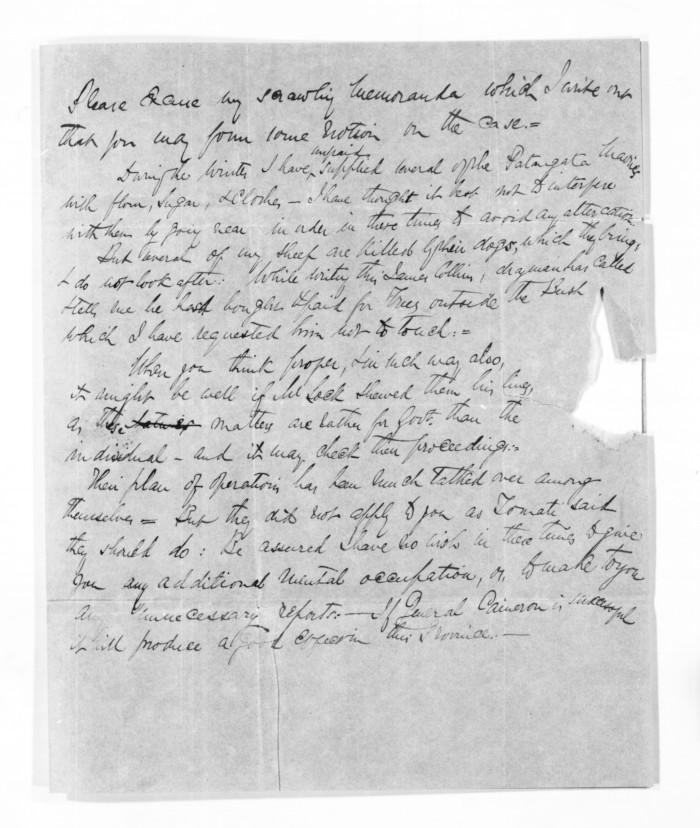 Please excuse my scrawling memoranda which I write out
that you may form some notion on the case. =
During the Winter I have unpaid supplied several of the Patangata Maories
with flour, Sugar, & Clothes — I have thought it best not to interfere
with them by going near in order in these times to avoid any altercation.
But several of my sheep are killed by their dogs, which they bring,
& do not look after: While writing this James Collins, drayman has called
& tells me he has bought & paid for Trees outside the Bush
which I have requested him not to touch: =
When you think proper, & in such way also,
it might be well if Mr Lock shewed them his lines,
as these matters are rather for Govt. than the
individual — and it may check their proceedings: =
Their plan of operations has been much talked over among
themselves = But they did not apply to you as Tomati said
they should do: Be assured I have no wish in these times to give
you any additional mental occupation, or, to make to you
any unnecessary reports. — If General Cameron is successful
it will produce a good effect in this Province. —